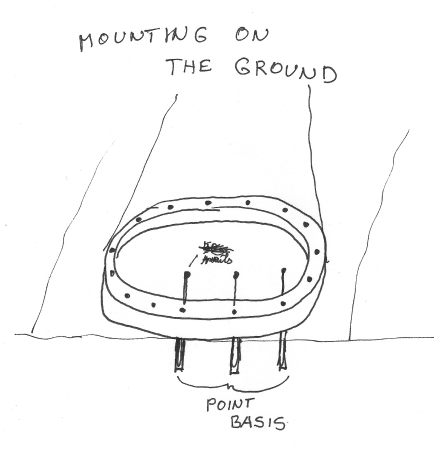 MOUNTING ON
THE GROUND
POINT
BASIS